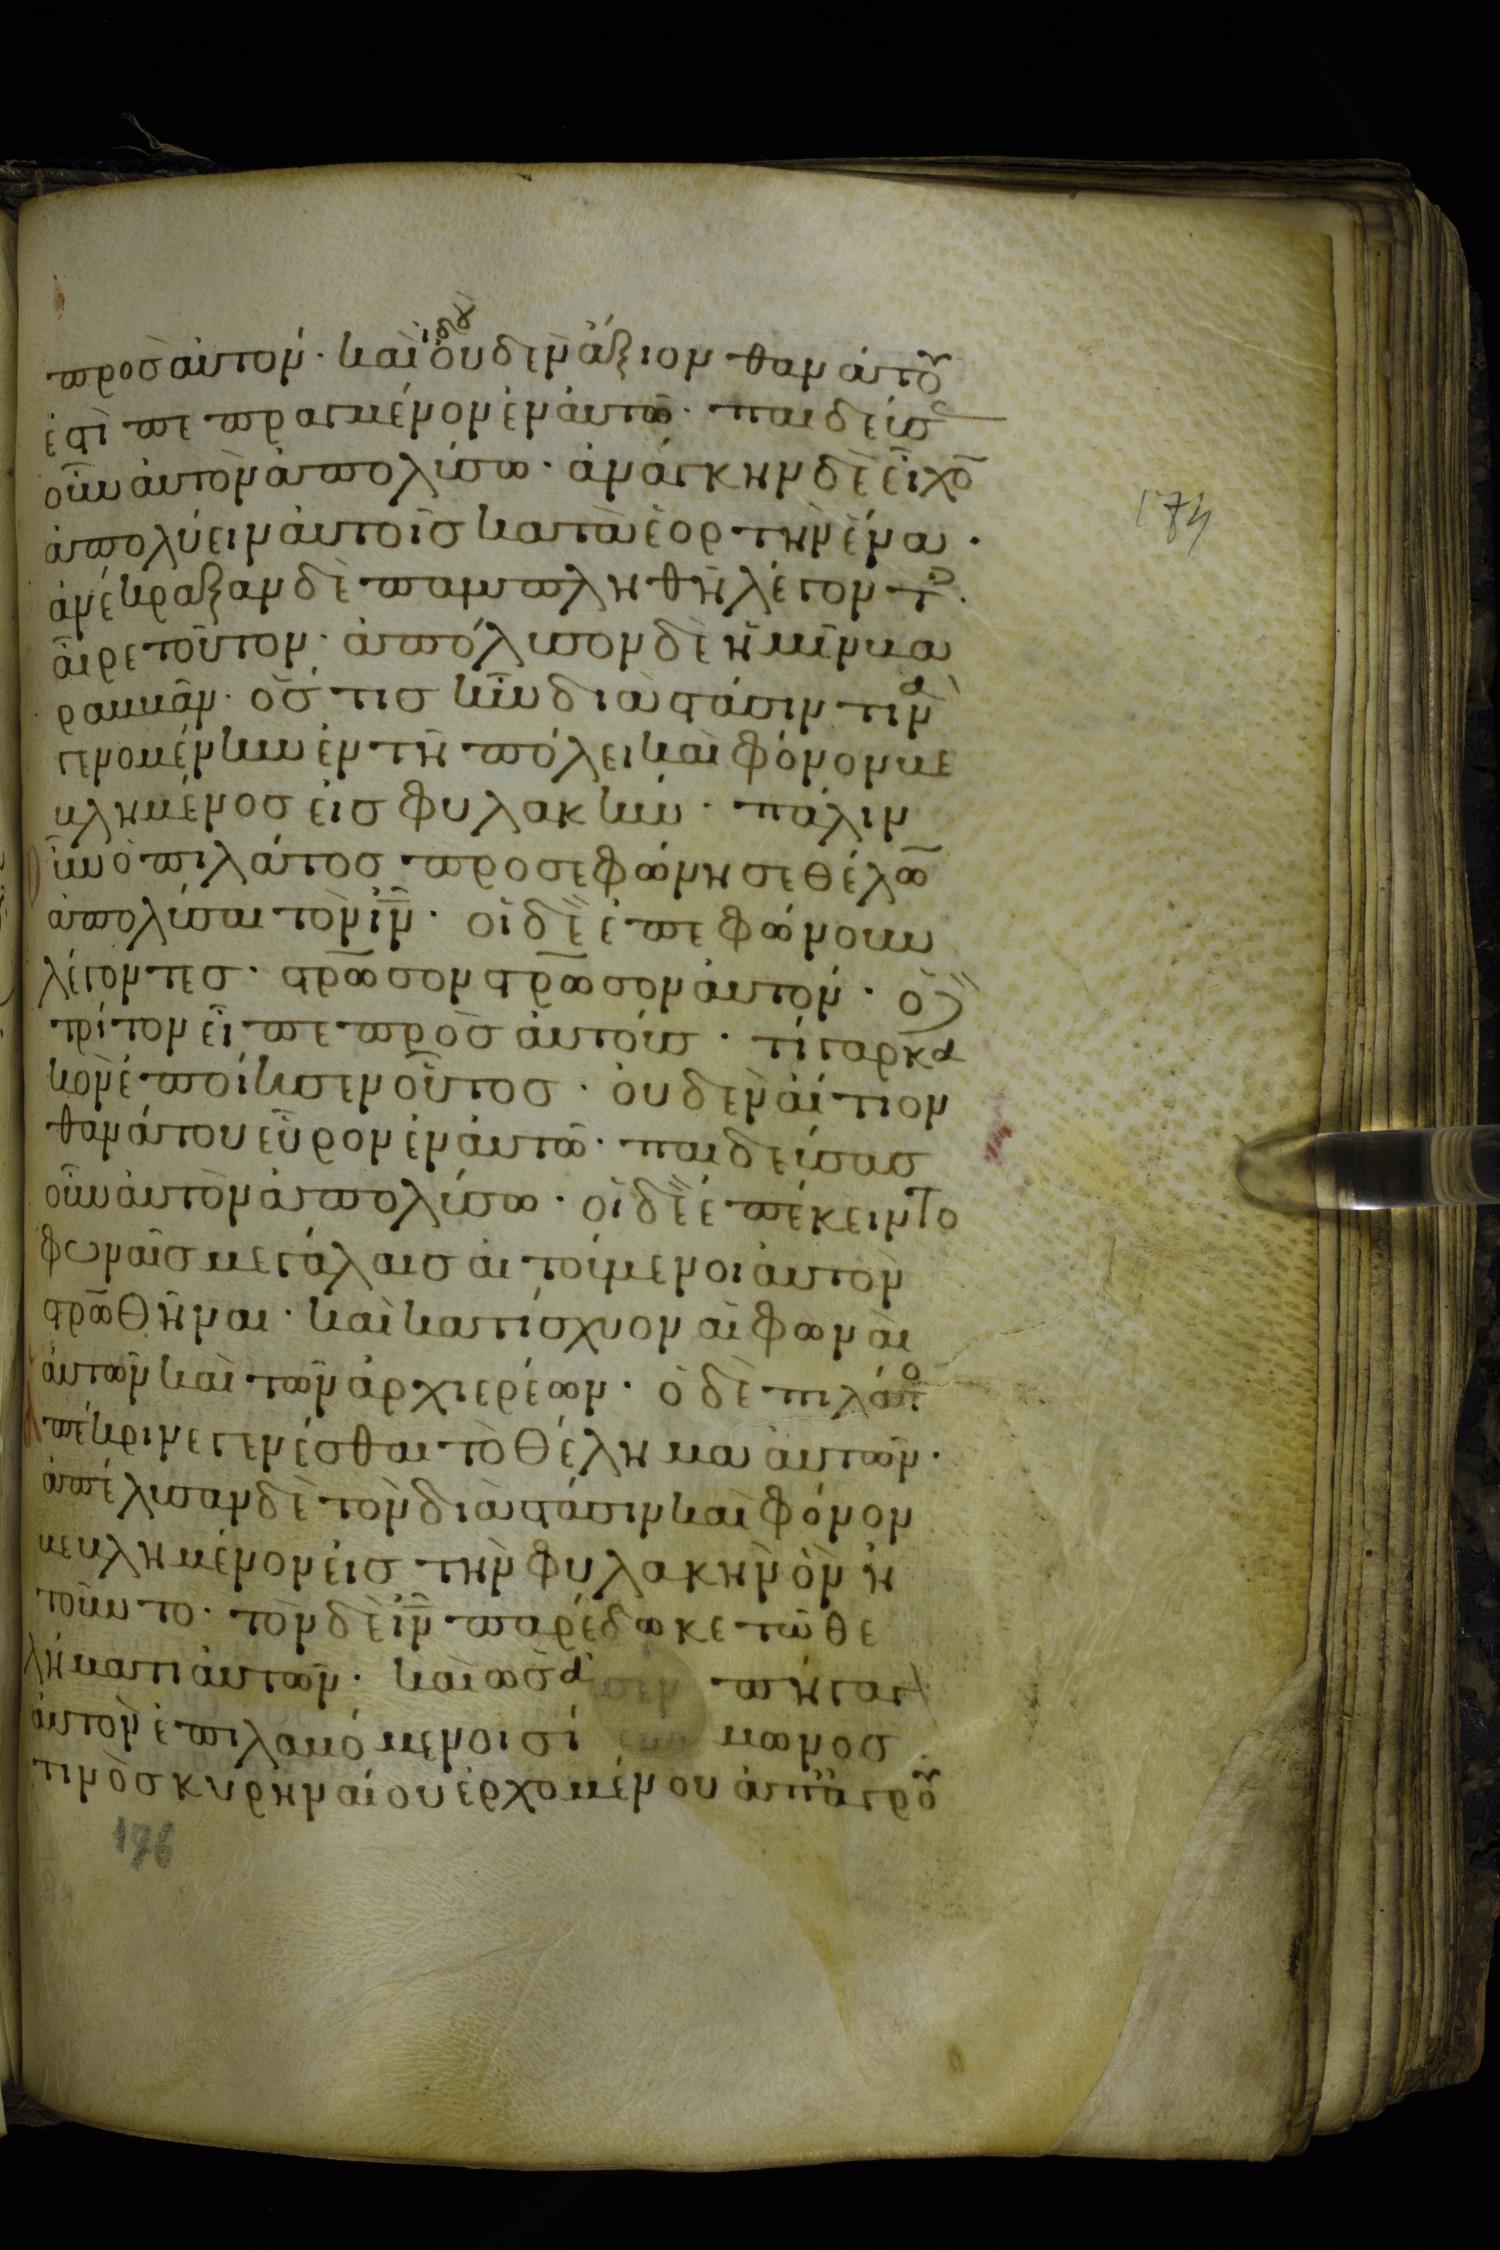 προσ αὐτόν· καὶ ἰδοὺ οὐδὲν ἄξιον θανάτου
ἐστὶ πεπραγμένον ἐν αὐτῶ· παιδεύσ
οὖν αὐτὸν ἀπολύσω· ἀνάγκην δὲ εἶχε̅
ἀπολύειν αὐτοῖσ κατὰ ἑορτὴν ἕνα·
ἀνέκραξαν δὲ παμπληθῆ λέγοντ·
αἶρε τοῦτον· ἀπόλυσον δὲ ἡμῖν βα
ραββᾶν· ὅστισ ἦν διὰ στάσιν τινὰ
γενομένην ἐν τῆ πόλει καὶ φόνον βε
βλημένοσ εἰσ φυλακήν· πάλιν
οὖν ὁ πιλάτοσ προσεφώνησε θέλω̅
ἀπολύσαι τὸν ι̅ν̅· οἱ δὲ ἐπεφώνουν
λέγοντεσ· στρω̅σον στρω̅σον αὐτόν· ὁ δὲ
τρίτον εἶπε πρὸσ αὐτούσ· τί γὰρ κα
κὸν ἐποίησεν οὗτοσ· οὐδὲν αἴτιον
θανάτου εὗρον ἐν αὐτῶ· παιδεύσασ
οὖν αὐτὸν ἀπολύσω· οἱ δὲ ἐπέκειντο
φωναῖσ μεγάλαισ αἰτούμενοι αὐτὸν
στρω̅θῆναι· καὶ κατίσχυον αἱ φωναὶ
αὐτῶν καὶ τῶν ἀρχιερέων· ὁ δὲ πιλάτο
ἐπέκρινε γενέσθαι τὸ θέλημα αὐτῶν·
ἀπέλυσαν δὲ τὸν διὰ στάσιν καὶ φόνον
βεβλημένον εἰσ τὴν φυλακὴν ὃν ἠ
τοῦντο· τὸν δὲ ι̅ν̅ παρέδωκε τῶ θε
λήματι αὐτῶν· καὶ ὡσ ἀπήγαγ
αὐτὸν ἐπιλαβόμενοι σί μωνοσ
τινὸσ κυρηναίου ἐρχομένου ἀπ ἀγροῦ
174
176